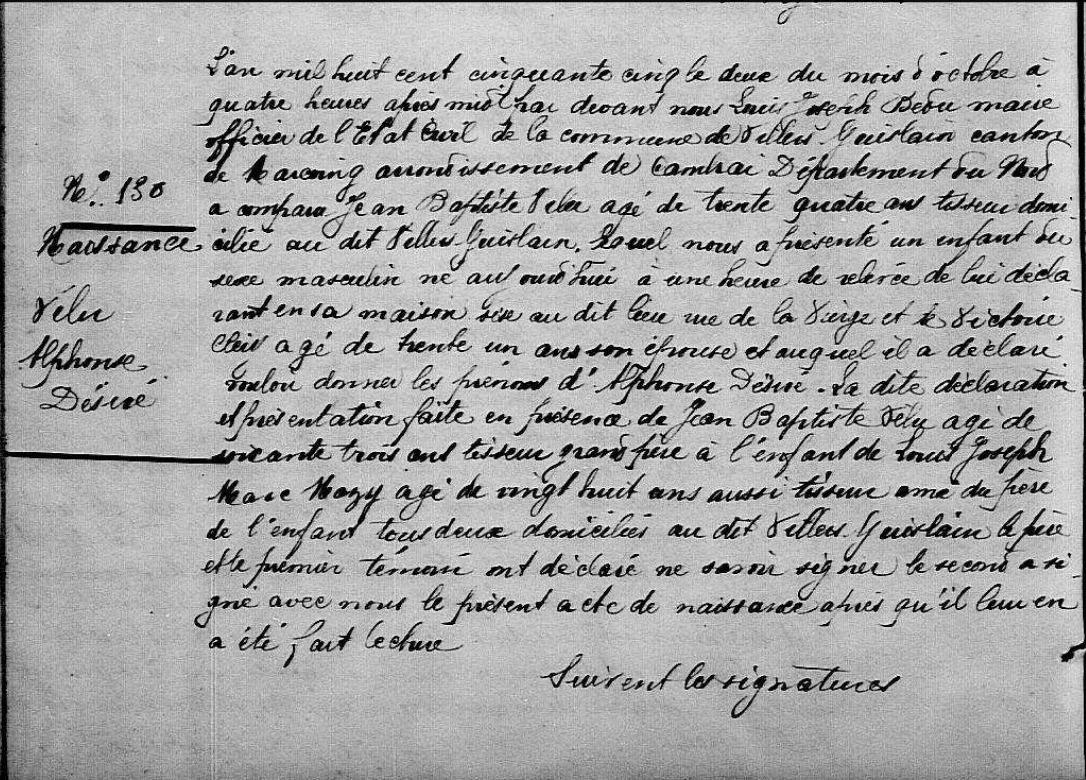 L'an mil huit cent cinquante cinq le deux du mois d'octobre à
quatre heures après midi par devant nous Louis Joseph Bedu maire
officier de l'Etat Civil de la commune de Villers Guislain canton
de Marcoing arrondissement de Cambrai Département du Nord
N°. 130
a comparu Jean Baptiste Velu agé de trente quatre ans tisseur domi
Naissance
cilié au dit Villers-Guislain, lequel nous a présenté un enfant du
sexe masculin né aujourd'hui à une heure de relevée de lui décla
Vélu
rant en sa maison sise au dit lieu rue de la Vierge et de Victoire
Alphonse
agé de trente un ans son épouse et auquel il a déclaré
Désiré
vouloir donner les prénoms d'Alphonse Désiré. La dite déclaration
et présentation faite en présence de Jean Baptiste Velu agé de
soixante trois ans tisseur grand père à l'enfant de Louis Joseph
Marc Mazy agé de vingt huit ans aussi tisseur ami du père
de l'enfant tous deux domiciliés au dit Villers-Guislain le père
et le premier témoin ont déclaré ne savoir signer le second a si
gné avec nous le présent acte de naissance après qu'il leur en
a été fait lecture
Suivent les signatures